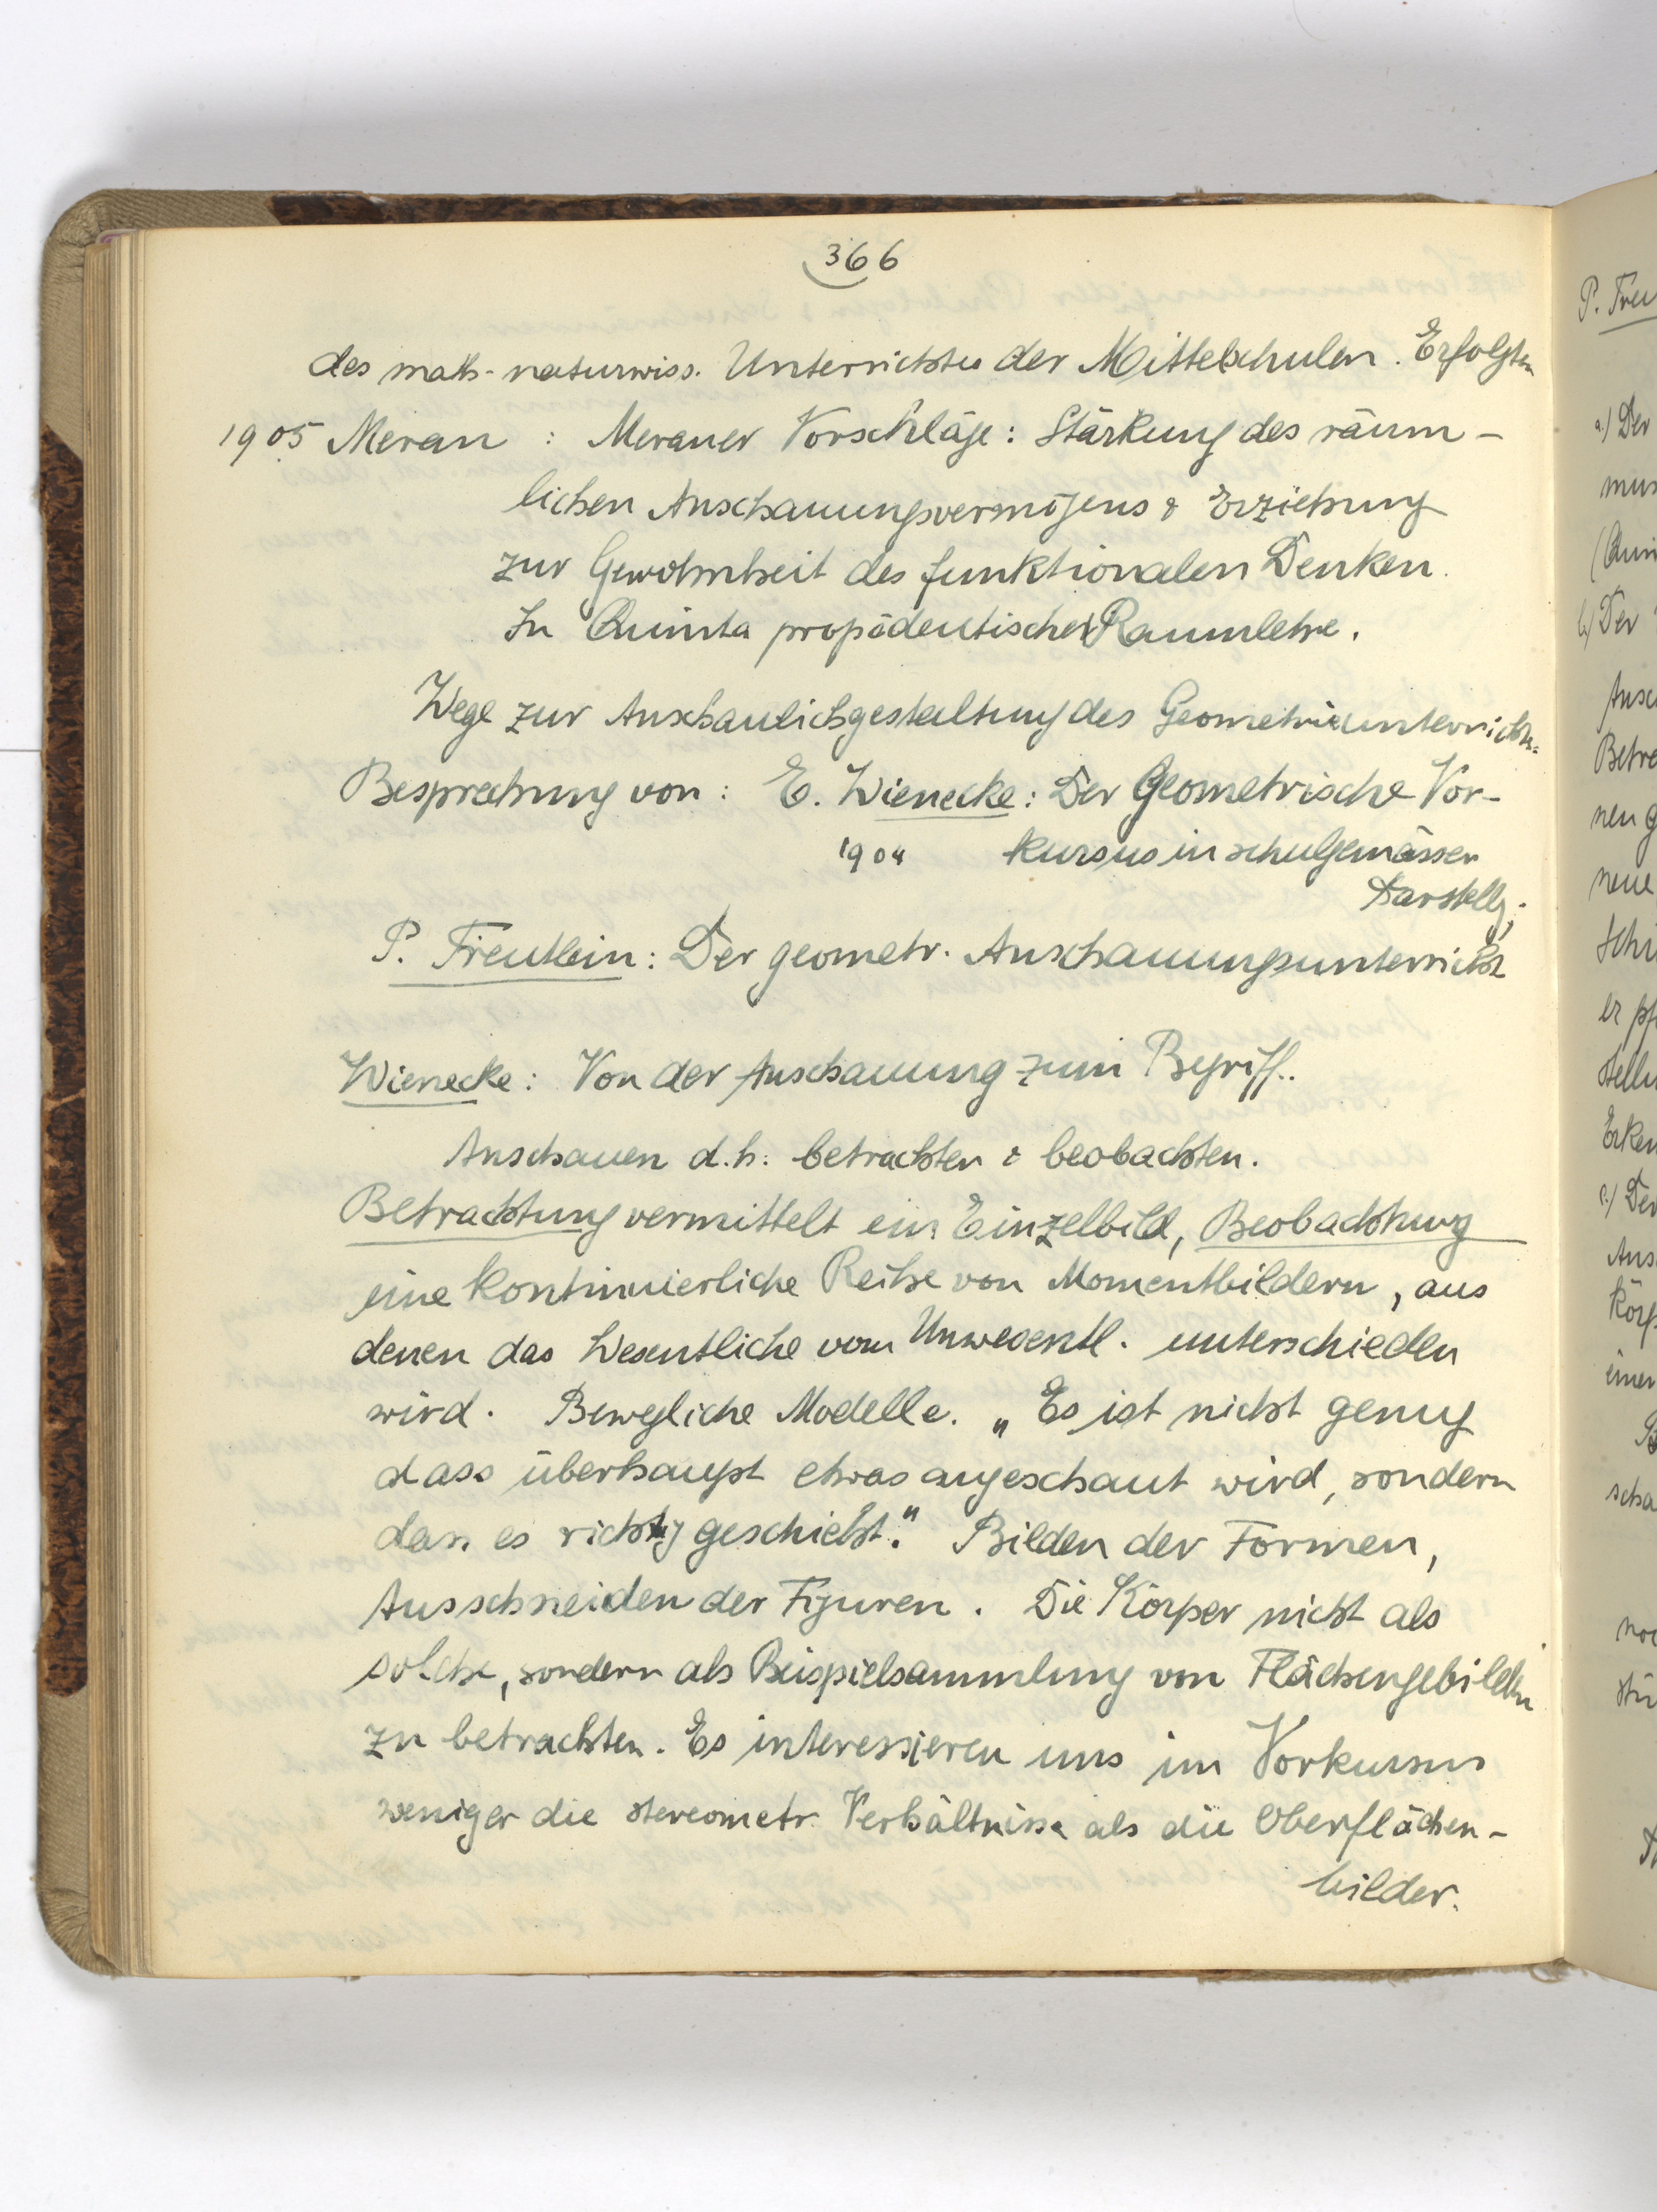 366
des math-naturwiss. Unterrichtes der Mittelschulen. Erfolgten
1905 Meran : Meraner Vorschläge: Stärkung des räum-
lichen Anschauungsvermögens & Erziehung
zur Gewohnheit des funktionalen Denken.
In Quinta propädeutische Raumlehre.
Wege zur Anschaulichgestaltung des Geometrieunterrichts.
Besprechung von: E. Wienecke: Der Geometrische Vor-
1904 kursus in schulgemässer
Darstellg.
P. Treutlein: Der geometr. Anschauungsunterricht
Wienecke: Von der Anschauung zum Begriff.
Anschauen d.h. betrachten & beobachten.
Betrachtung vermittelt ein Einzelbild, Beobachtung
eine kontinuierliche Reihe von Momentbildern, aus
denen das Wesentliche vom Unwesentl. unterschieden
wird. Bewegliche Modelle. „Es ist nicht genug
dass überhaupt etwas angeschaut wird, sondern
dass es richtig geschieht." Bilden der Formen,
Ausschneiden der Figuren. Die Körper nicht als
solche, sondern als Beispielsammlung von Flächengebilden
zu betrachten. Es interessieren uns im Vorkursus
weniger die stereometr. Verhältnisse als die Oberflächen-
bilder.
P. Treu
a.) Der
b.) Der
Betre
nen g
neue
er pf
c.) Der
Ans
Körp
einer
scha